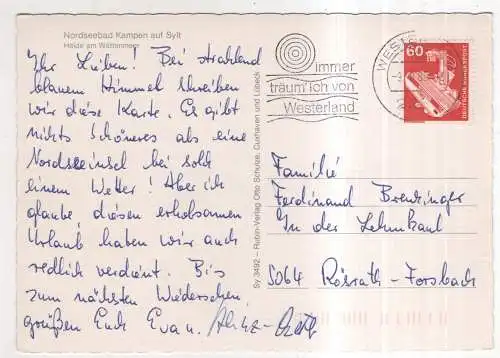 Nordseebad Kampen auf Sylt
Heide am Wattenmeer
Ihr Lieben! Bei strahlend
blauem Himmel schreiben
wir diese Karte. Es gibt
nichts Schöneres als eine
Nordseeinsel bei solch
einem Wetter! Aber ich
glaube diesen erholsamen
Urlaub haben wir auch
redlich verdient. Bis
zum nächsten Wiedersehen
grüßen Euch Eva u.
Sy 3492 – Rubin-Verlag Otto Schulze, Cuxhaven und Lübeck
immer
träum' ich von
Westerland
60
DEUTSCHE BUNDESPOST
Familie
Ferdinand Brensinger
In der Lehmkaul
5064 Rösrath-Forsbach